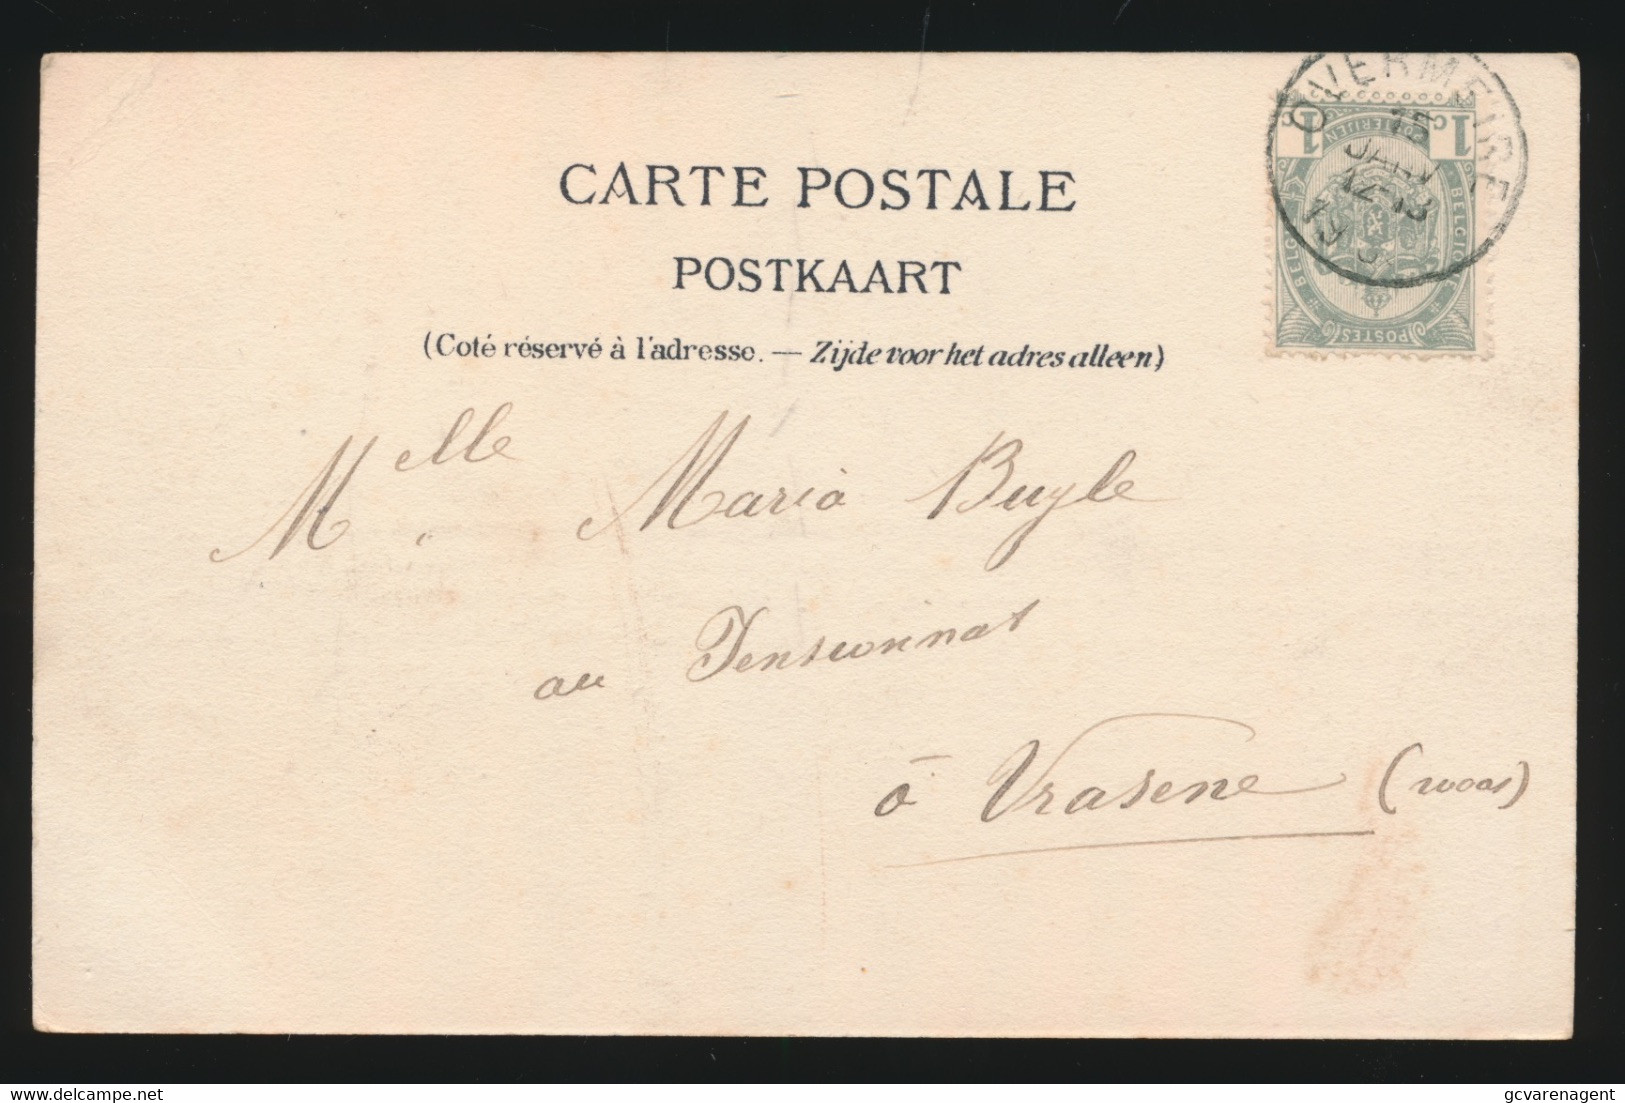 CARTE POSTALE
POSTKAART
(Coté réservé à l'adresse. — Zijde voor het adres alleen)
OVERMEIRE
15
JANV
12-13
1c 1c
POSTERIJEN
BELGIQUE BELGIE
POSTES
Melle Maria Buyle
au Pensionnat
à Vrasene (waas)
delcampe.net
gcvarenagent